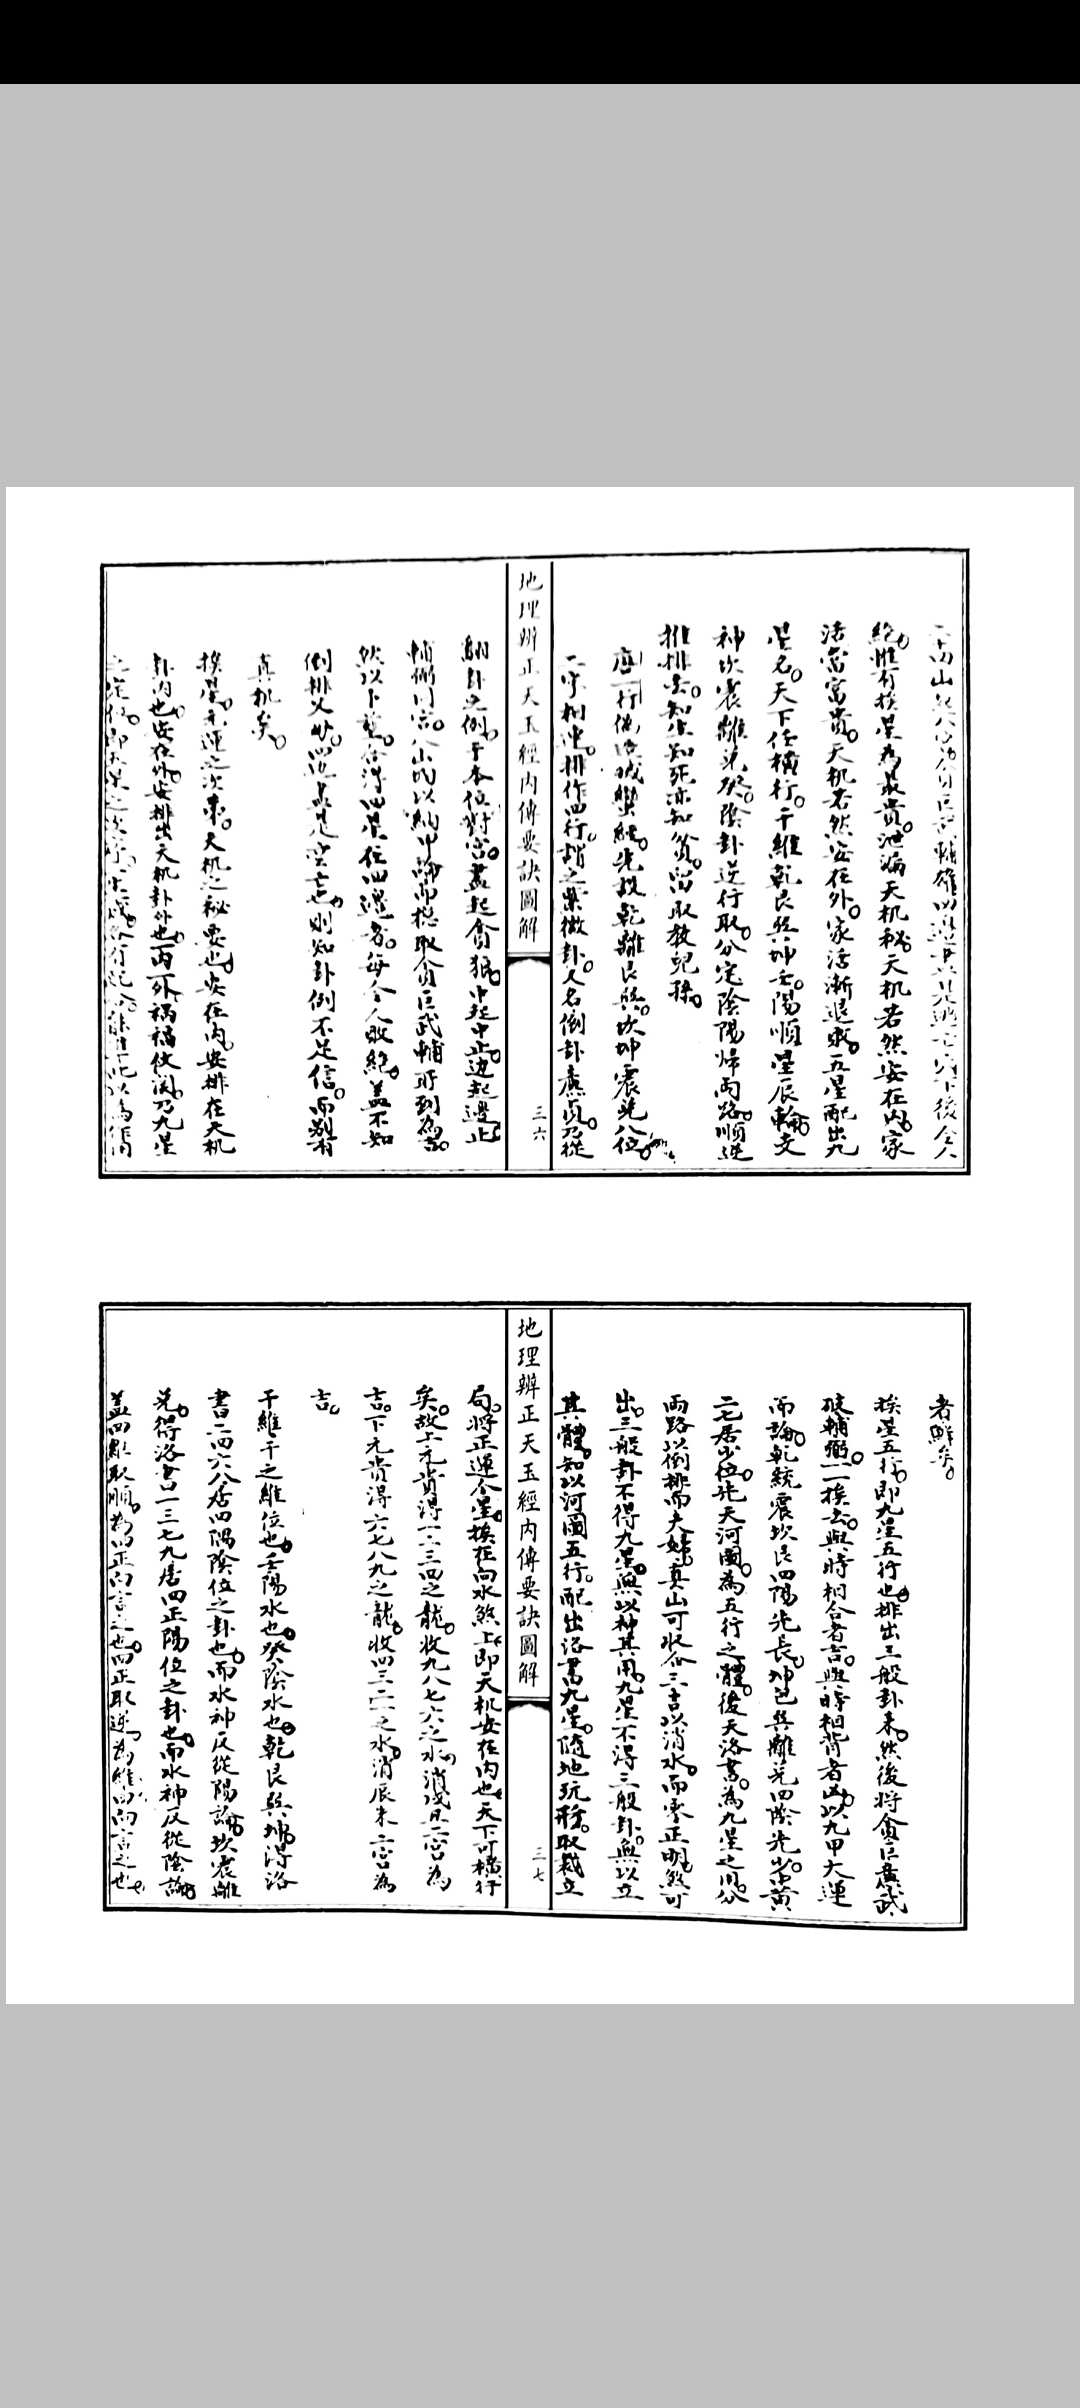 絕惟有挨星為最貴泄漏天机秘天机若然安在內家
活當富貴天机若然安在外家活漸退敗五星配出九
星名天下任橫行干維乾艮巽坤壬陽順星辰輪支
神坎震離兌癸陰卦逆行取分定陰陽歸兩路順逆
推排去知生知死亦知貧留取教兒孫
唐一行偽造滅蠻經先投乾離艮巽坎坤震兌八位
二字相連排作四行謂之紫微卦又名倒卦廉貞乃從
地理辨正天玉經內傳要訣圖解
三六
納卦之例于本位對宮畫起貪狼中起中止边起邊止
輔弼同宮八山均以納甲論而揔取貪巨武輔所到為吉
倒排父母四吉未是空言也則知卦例不足信而別有
真机矣
挨星元運之次來天机之秘要也安在內安排在天机
卦內也安在外安排出天机卦外也內外禍福攸関乃九星
者鮮矣
挨星五行即九星五行也排出三般卦来然後將貪巨廉武
破輔弼一一挨去與時相合者吉與時相背者凶以九甲大運
而論乾統震坎艮四陽先長坤包巽離兌四陰先少黃
二七居少位先天河圖為五行之體後天洛書為九星之用分
兩路以倒排而夫婦真山可收分三吉以消水而零正明煞可
出三般卦不得九星無以神其用九星不得三般卦無以立
其體知以河圖五行配出洛書九星隨地玩形取裁立
地理辨正天玉經內傳要訣圖解
三七
局將正運令星挨在向水煞上即天机安在內也天下可橫行
矣故上元貴得一二三四之龍收九八七六之水消戌丑二宮為
吉下元貴得六七八九之龍收四三二一之水消辰未二宮為
吉
干維干之維位也壬陽水也癸陰水也乾艮巽坤得洛
書二四六八居四隅陰位之卦也而水神反從陽論坎震離
兌得洛書一三七九居四正陽位之卦也而水神反從陰論
蓋四維取順為四正向言之也四正取逆為維四向言之也